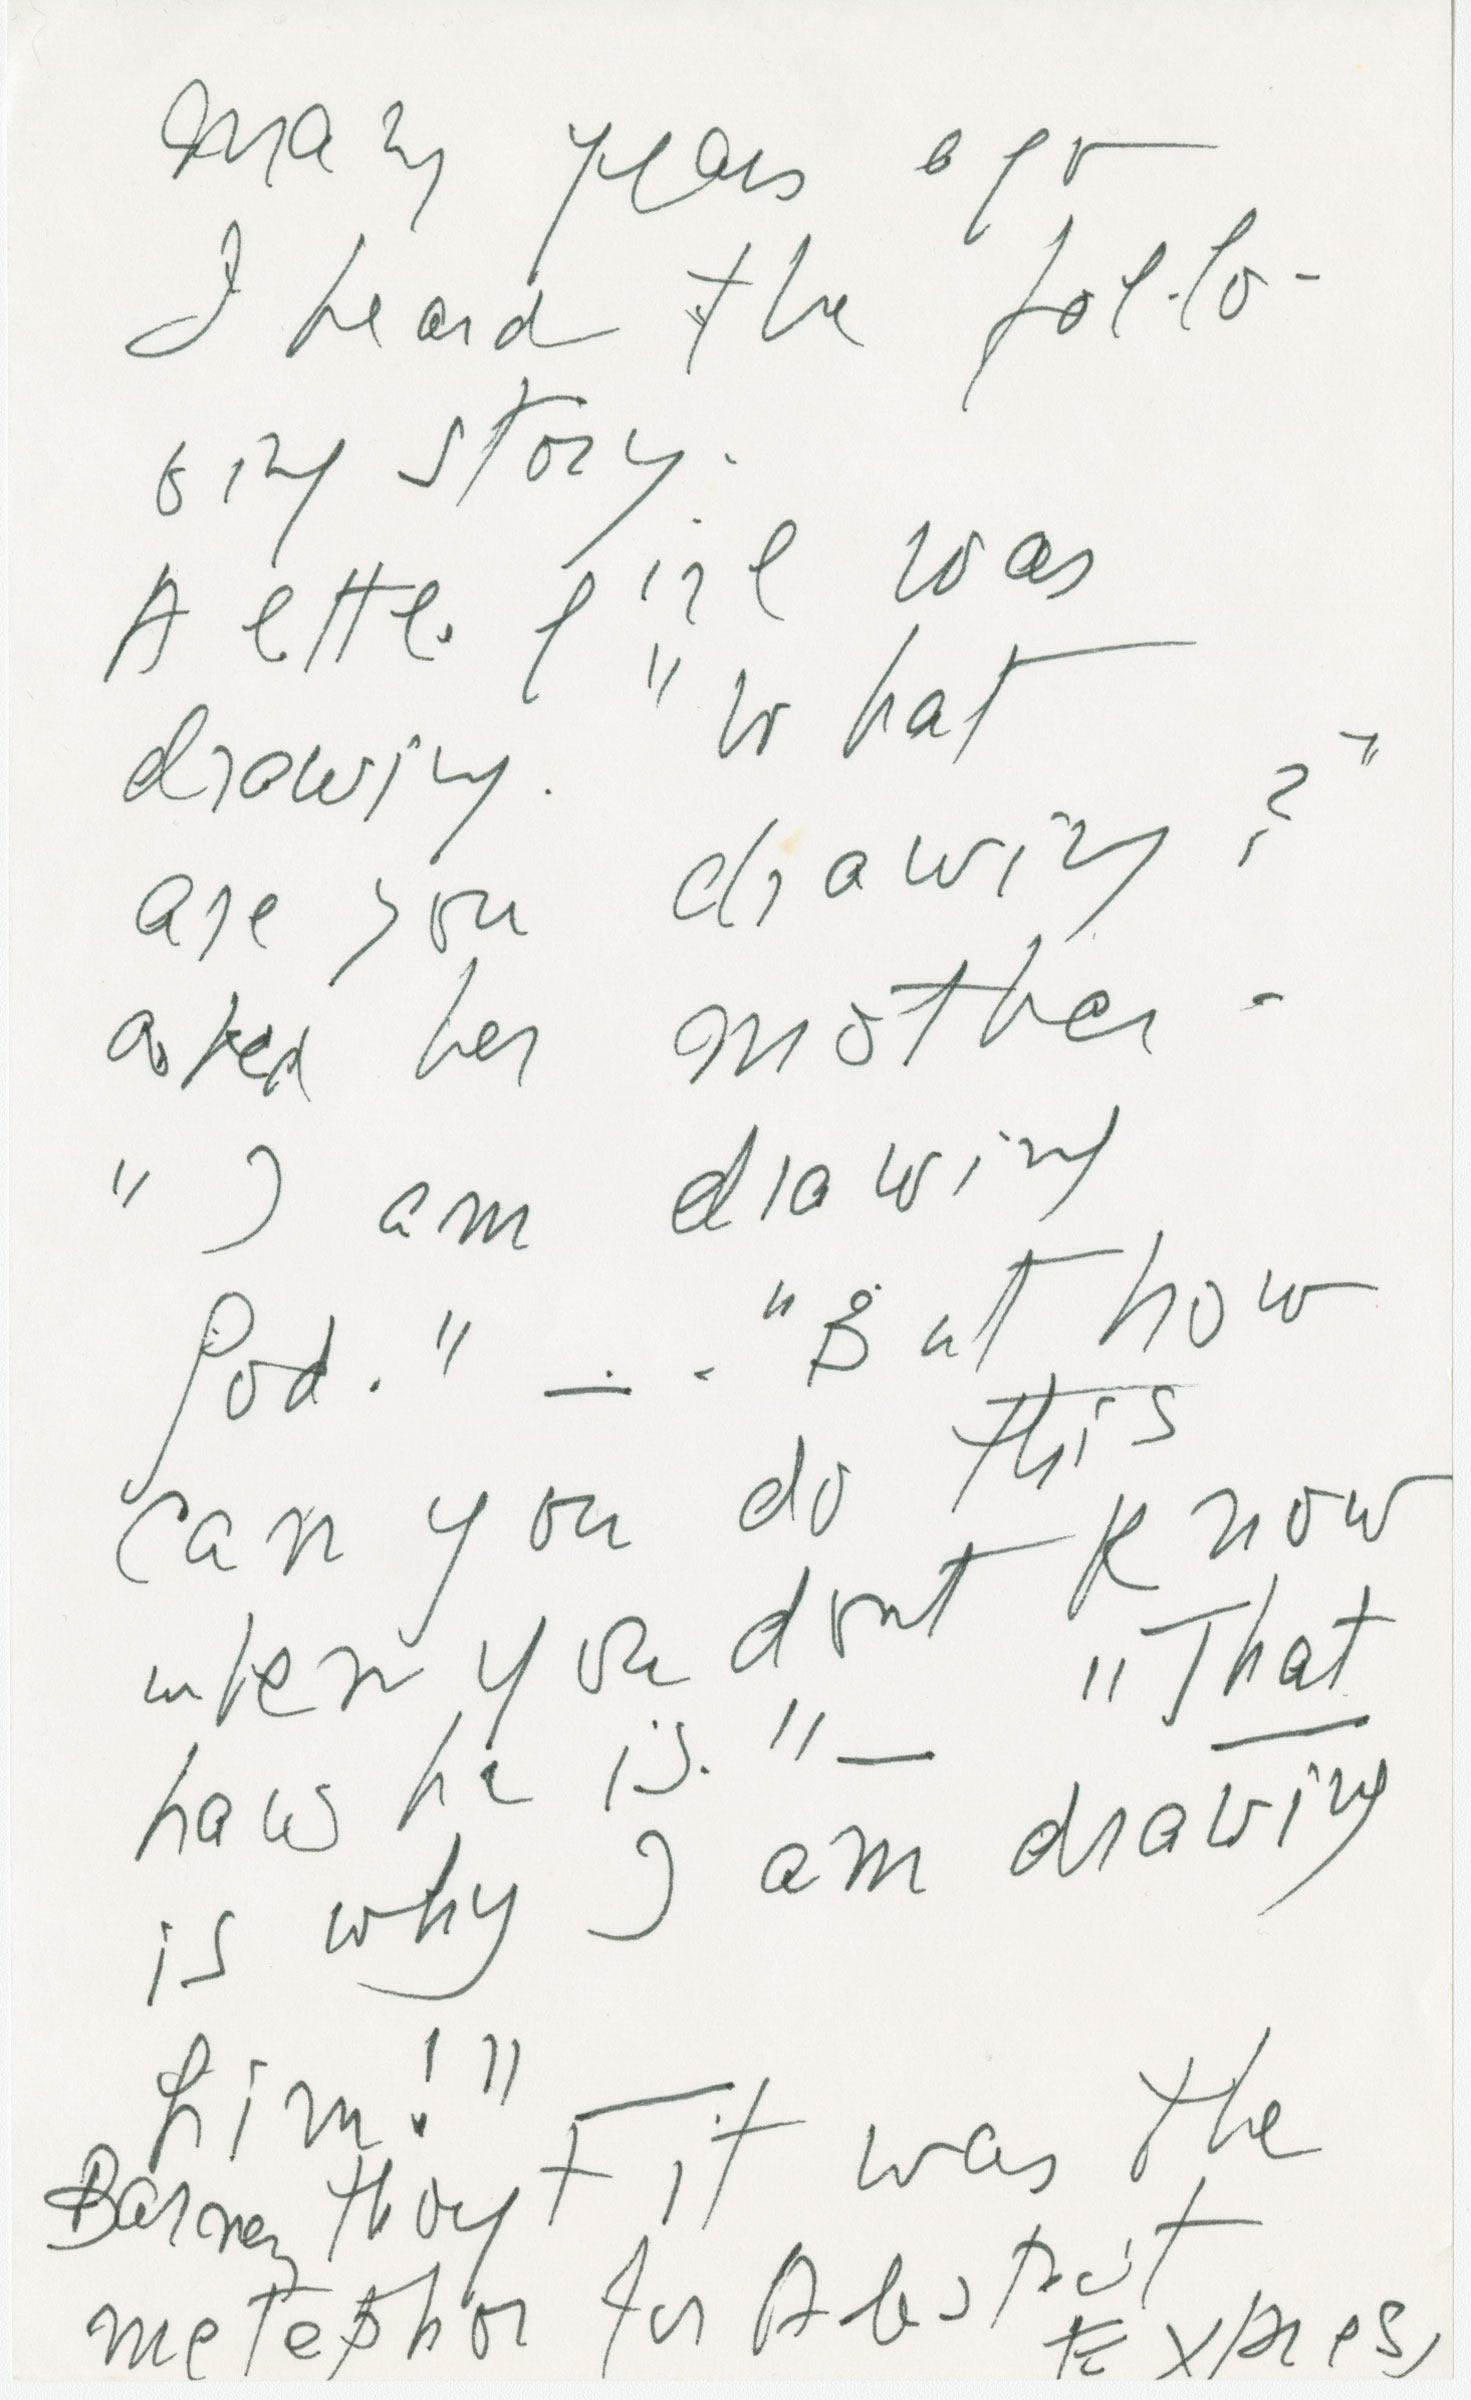 Many years ago
I heard the fol-lo-
wing story.
A little girl was
drawing. "What
are you drawing?"
asked her mother -
"I am drawing
God." — . "But how
can you do this
when you dont know
haws he is." — "That
is why I am drawing
him!" —
Barney thought it was the
metephor for Abstract
Expres,